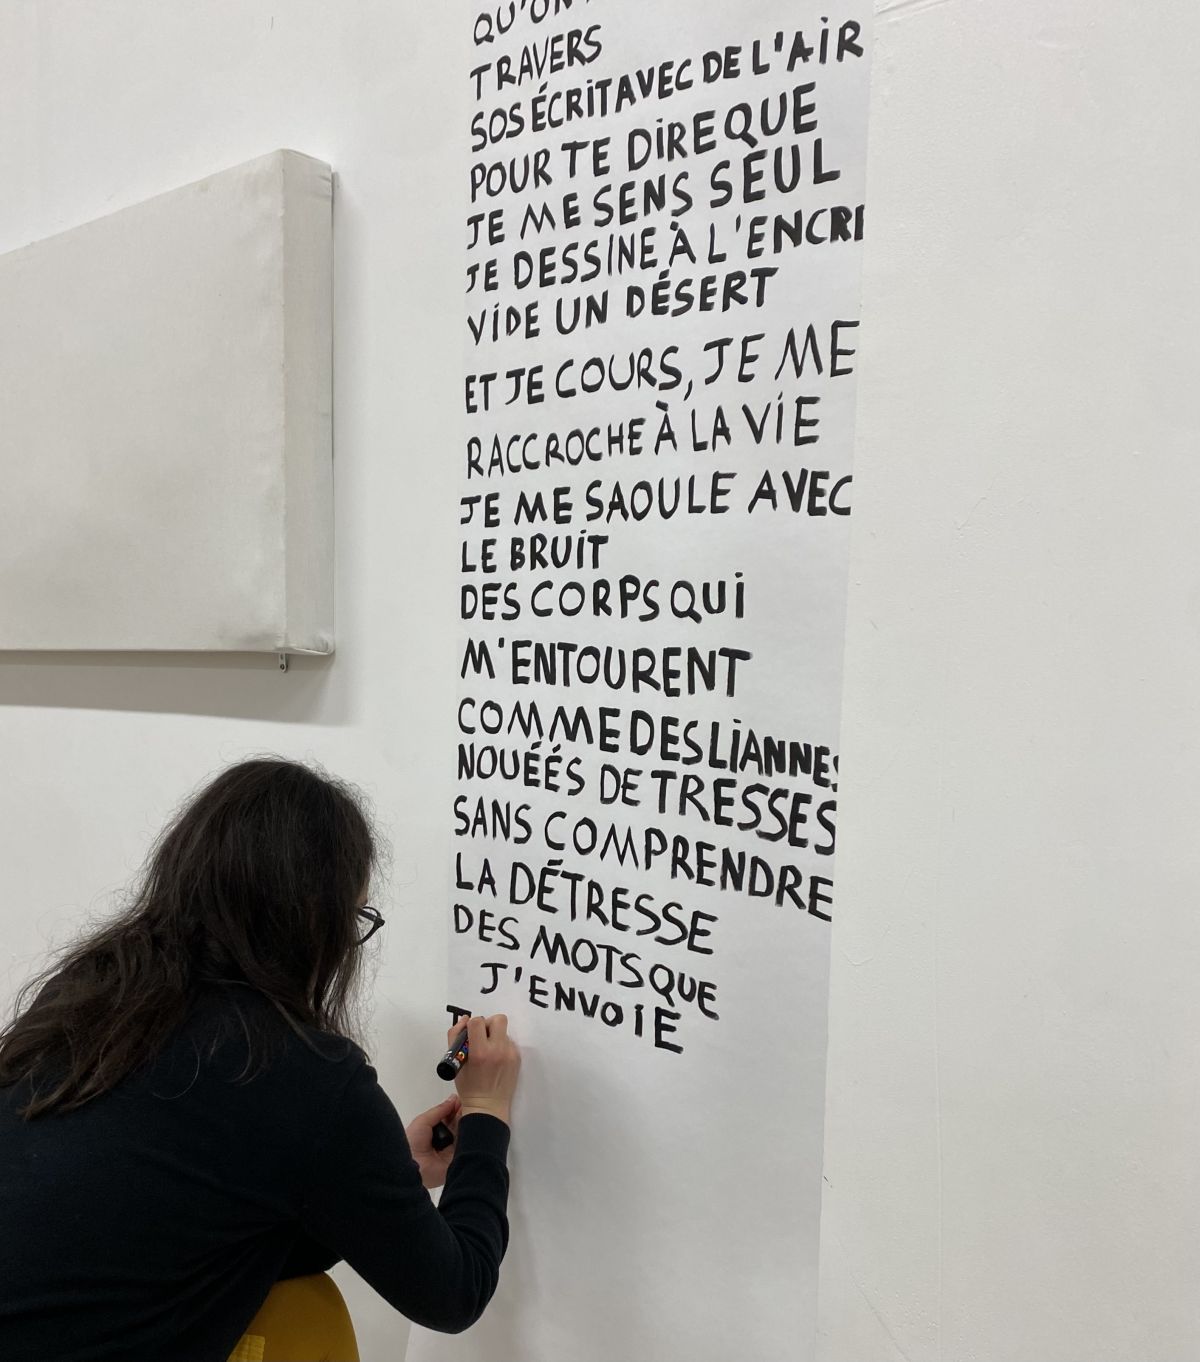 QU'ON
TRAVERS
SOS ÉCRIT AVEC DE L'AIR
POUR TE DIRE QUE
JE ME SENS SEUL
JE DESSINE À L'ENCRE
VIDE UN DÉSERT
ET JE COURS, JE ME
RACCROCHE À LA VIE
JE ME SAOULE AVEC
LE BRUIT
DES CORPS QUI
M'ENTOURENT
COMME DES LIANNES
NOUÉÉS DE TRESSES
SANS COMPRENDRE
LA DÉTRESSE
DES MOTS QUE
J'ENVOIE